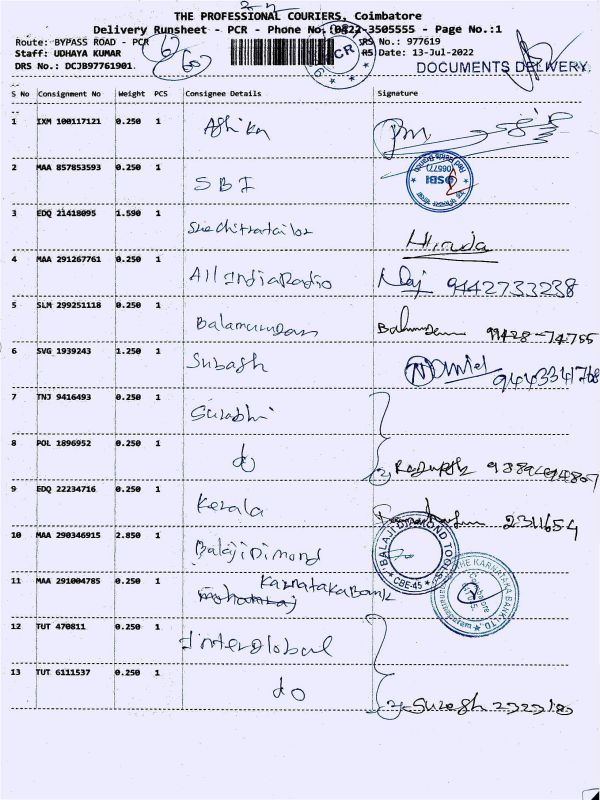 THE PROFESSIONAL COURIERS, Coimbatore
Delivery Runsheet - PCR - Phone No.:0422-3505555 - Page No.:1
Route: BYPASS ROAD - PCR
SRS No.: 977619
Staff: UDHAYA KUMAR
SRS Date: 13-Jul-2022
DRS No.: DCJB97761901
DOCUMENTS DELIVERY
CR
S No Consignment No Weight PCS Consignee Details Signature
1 IXM 100117121 0.250 1
2 MAA 857853593 0.250 1 SBI
SBI
3 EDQ 21418095 1.590 1
4 MAA 291267761 0.250 1 All India Radio 9442733238
5 SLM 299251118 0.250 1 99428-74755
6 SVG 1939243 1.250 1 Subash Daniel 9443341768
7 TNJ 9416493 0.250 1 Surabhi
8 POL 1896952 0.250 1 do
9 EDQ 22234716 0.250 1 Kerala 2311654
10 MAA 290346915 2.850 1 Balaji Dimond
BALAJI DIMOND TOOLS
CBE-45
11 MAA 291004785 0.250 1 Karnataka Bank
THE KARNATAKA BANK LTD.
Coimbatore
12 TUT 470811 0.250 1 Interglobal
13 TUT 6111537 0.250 1 do Suresh